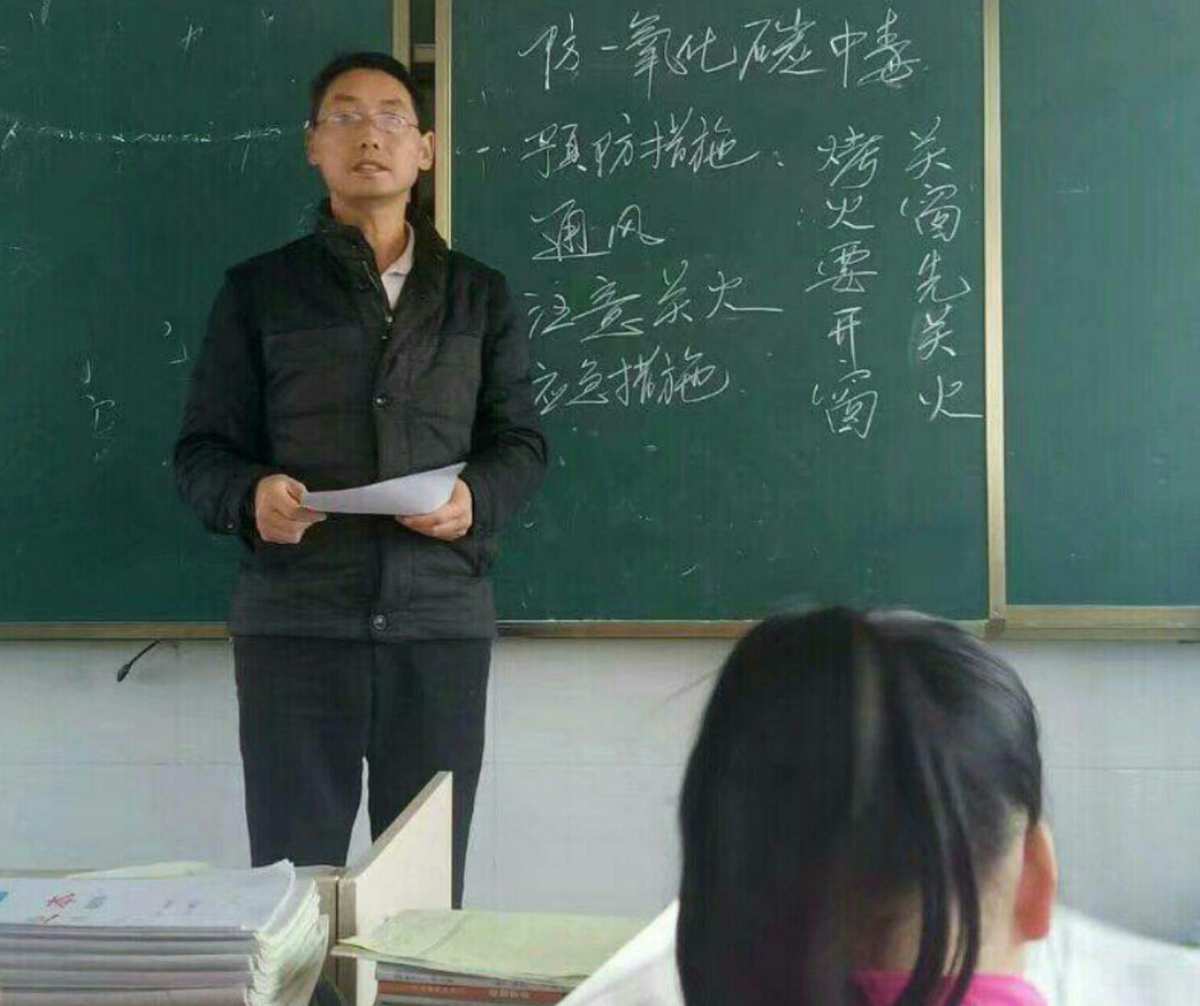 防一氧化碳中毒
一.预防措施:
通风
注意关火
应急措施.
烤火要开窗
关窗先关火